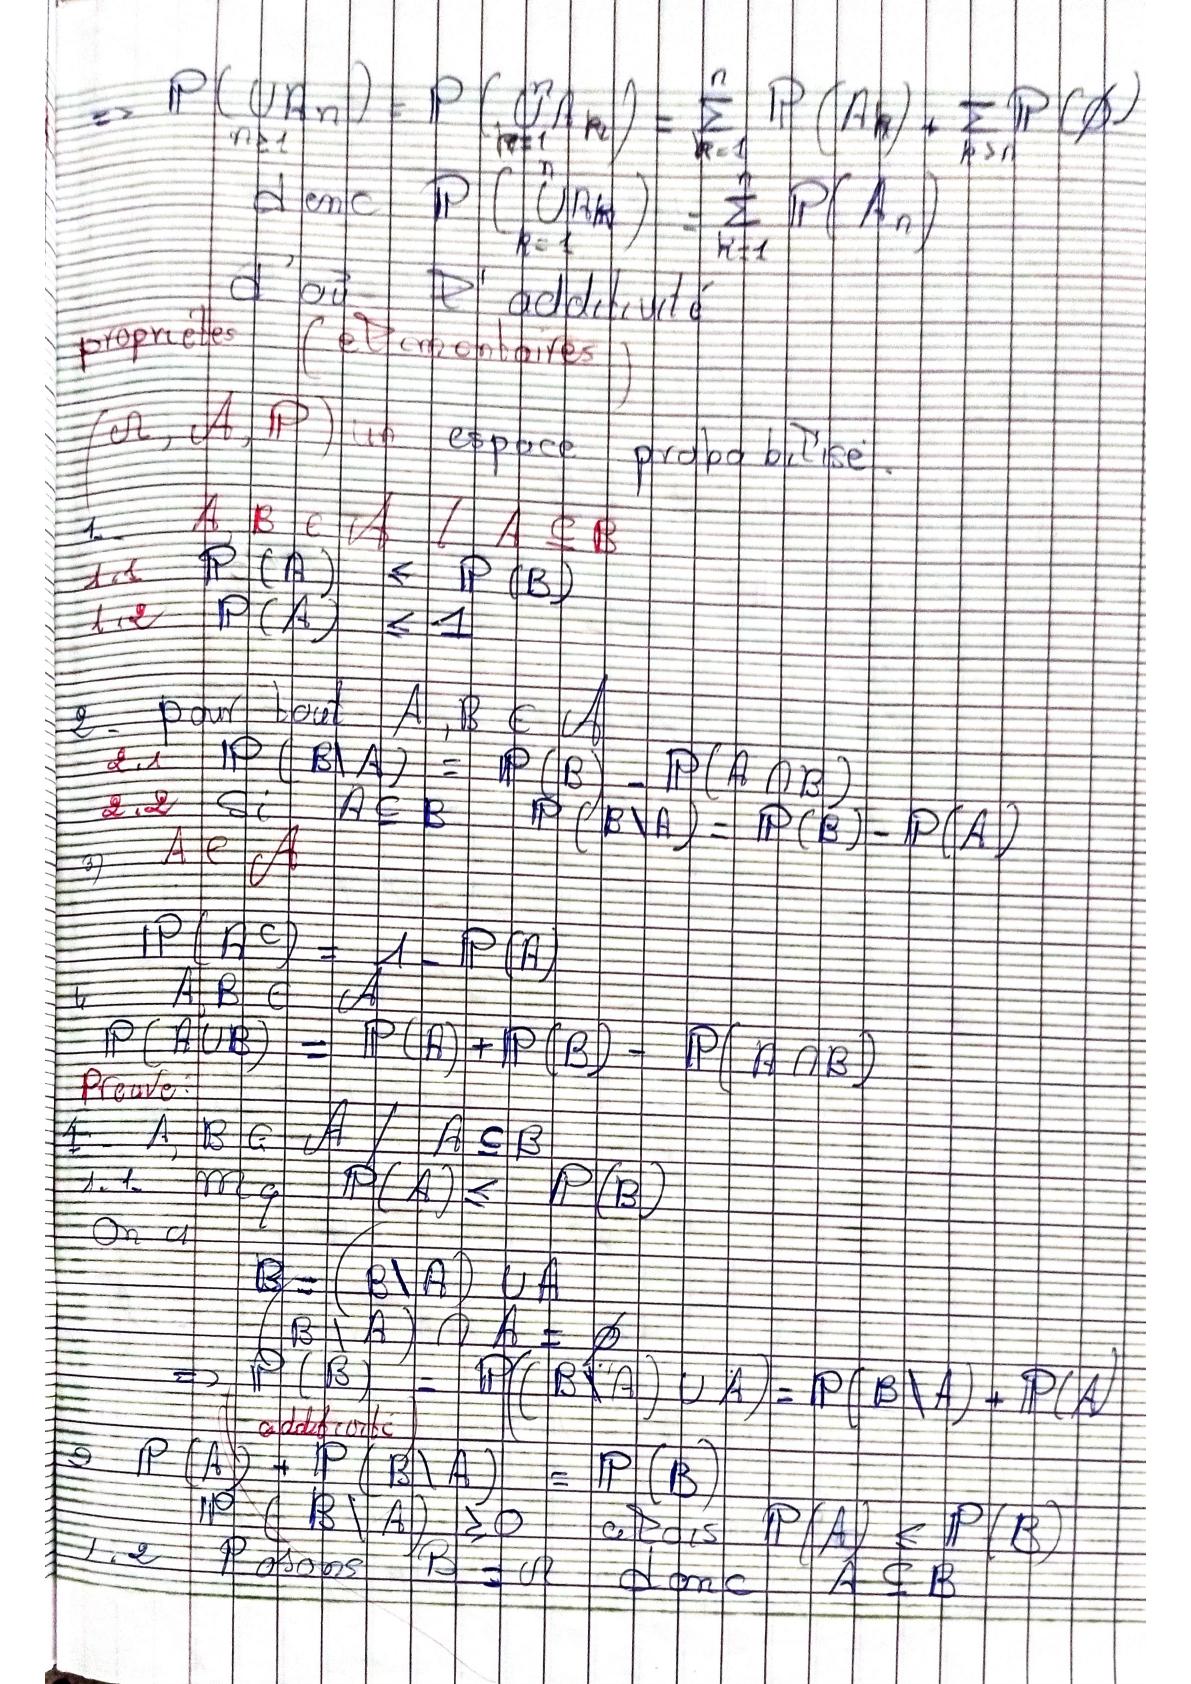 => ℙ(∪Aₙ) = ℙ(∪Aₖ) = Σ ℙ(Aₖ) + Σ ℙ(∅)
n≥1 k=1 n k=1 n k>n
donc ℙ(∪Aₖ) = Σ ℙ(Aₙ)
k=1 n k=1 n
d'où l'additivité
propriétes (elementaires)
(Ω, 𝒜, ℙ) un espace probabilisé.
1. A, B ∈ 𝒜 / A ⊆ B
1.1 ℙ(A) ≤ ℙ(B)
1.2 ℙ(A) ≤ 1
2. pour tout A, B ∈ 𝒜
2.1 ℙ(B\A) = ℙ(B) - ℙ(A∩B)
2.2 Si A⊆B ℙ(B\A) = ℙ(B) - ℙ(A)
3) A ∈ 𝒜
ℙ(Aᶜ) = 1 - ℙ(A)
4 A,B ∈ 𝒜
ℙ(A∪B) = ℙ(A) + ℙ(B) - ℙ(A∩B)
Preuve:
1- A, B ∈ 𝒜 / A ⊆ B
1.1. mq ℙ(A) ≤ ℙ(B)
On a
B = (B\A) ∪ A
(B\A) ∩ A = ∅
=> ℙ(B) = ℙ((B\A) ∪ A) = ℙ(B\A) + ℙ(A)
(additivité)
=> ℙ(A) + ℙ(B\A) = ℙ(B)
ℙ(B\A) ≥ 0 alors ℙ(A) ≤ ℙ(B)
1.2 Posons B = Ω donc A ⊆ B